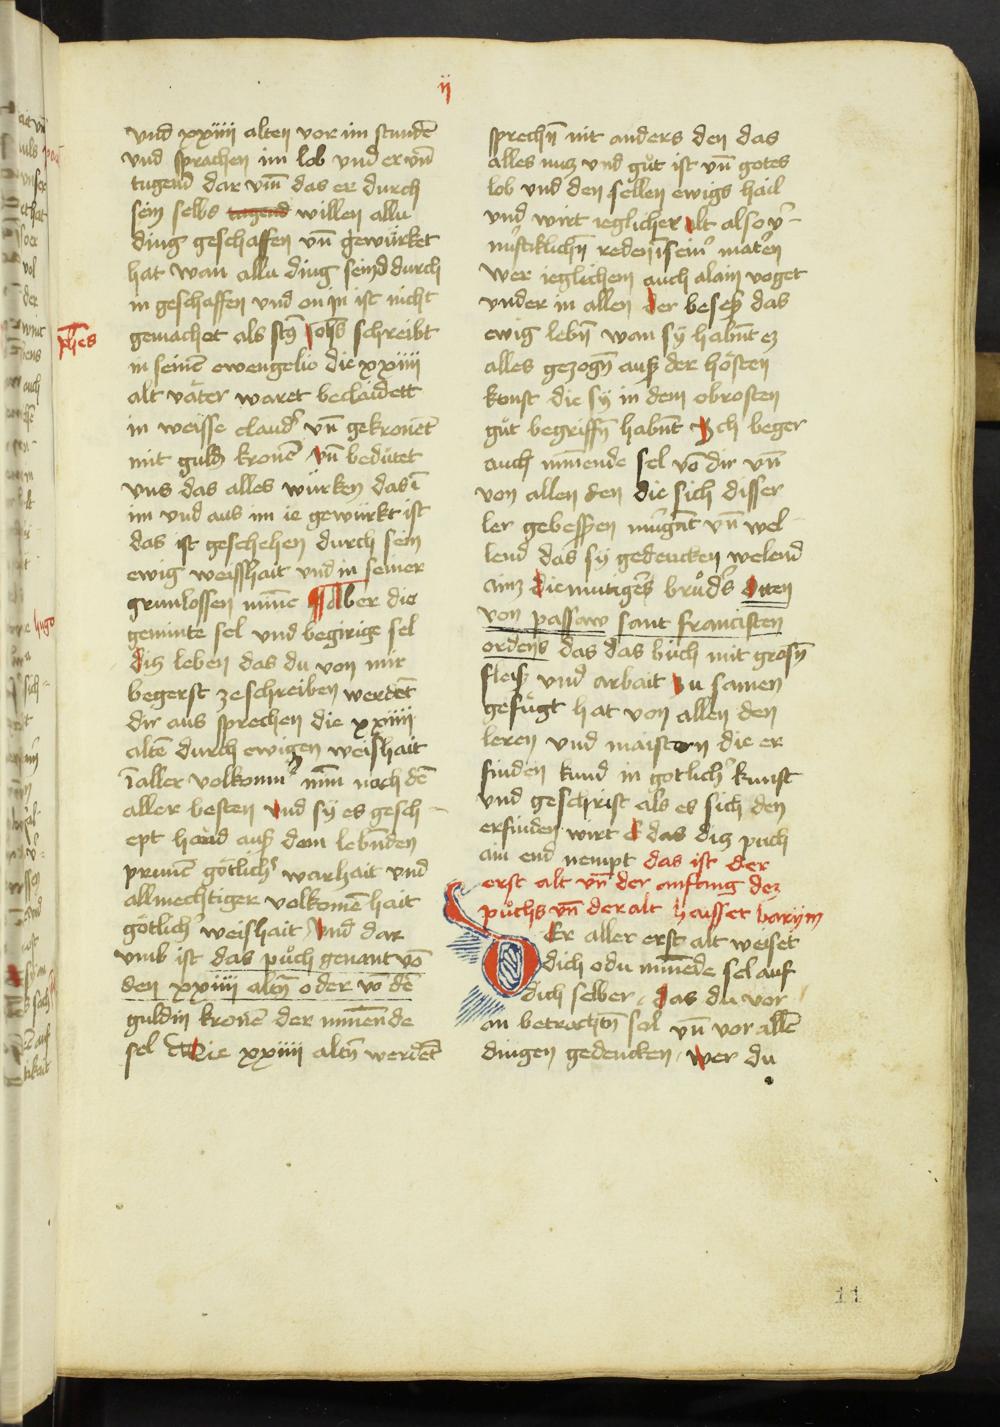 ij
und xxiiii alten vor im stundē
und sprachen im lob und er vn̄
tugend dar vm̄ das er durch
sein selbs tugend willen allu
ding geschaffen vn̄ gewürket
hat wan allu ding seind durch
in geschaffen und on in ist nicht
gemachet als schreibt
in seinē ewengelio die xxiiii
alt väter waret beclaidett
in weisse claid' vn̄ gekronet
mit guld kronē vn̄ bedütet
vns das alles würken das ī
im und aus im ie gewürkt ist
das ist geschehen durch sein
ewig weisshait und in seiner
grunlossen minne ¶ Aber die
geminte sel und begirige sel
diz leben das du von mir
begerst ze schreiben werdēt
dir aus sprechen die xxiiii
altē durch ewigen weishait
ī aller volkomn' nach dē
aller besten und sÿ es gesch-
ept hand auß dem lebnden
prunē götlich' warhait und
allmechtiger volkomēhait
götlich' weishait und dar
vmb ist das půch genant vō
den xxiiii altn̄ oder vō dē
guldin kronē der minnende
sel Die xxiiii altn̄ werdēt
sprechn̄ nit anders den das
alles nuz und gůt ist vn̄ gotes
lob und den sellen ewigs hail
und wirt ieglicher alt also v'-
nüftiklichn̄ reden ī sein' matēn
wer ieglichem auch alain voget
under in allen der beseß das
ewig lebn̄ wan sÿ habnt ez
alles gezogn̄ auß der hösten
konst die sÿ in dem obrosten
gůt begriffn̄ habnt Ich beger
auch minnende sel vō dir vn̄
von allen den die sich disser
ler gebessren mügāt vn̄ wel
lend das sÿ gedencken welend
ainz diemutigēs brůd's Otten
von passaw sant francisten
ordens das das bůch mit grosn̄
fleiß und arbait zu samen
gefügt hat von allen den
leren und maistern die er
finden kund in gotlich' kunst
und geschrift als es sich den
erfinden wirt E das diz puch
ain end nempt das ist der
erst alt vn̄ der anfang dez
půchs vn̄ der alt haisset
DEr aller erst alt weiset
dich o du minnēde sel auf
dich selber, das du vor
an betrachtn̄ sol vn̄ vor allē
dingen gedencken, wer du
11